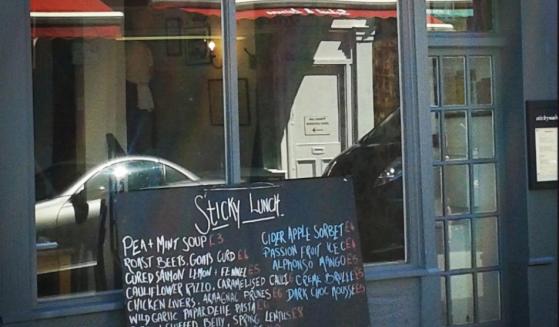 Sticky Lunch
PEA + MINT SOUP £3
ROAST BEETS, GOATS CURD £4
CURED SALMON LEMON + FENNEL £5
CAULIFLOWER PIZZO, CARAMELISED CAULI £
CHICKEN LIVERS, ARMAGNAC PRUNES £6
WILD GARLIC PAPARDELLE PASTA £
BELLY, SPRING LENTILS £8
CIDER APPLE SORBET £
PASSION FRUIT ICE £4
ALPHONSO MANGO £5
CREME BRULEE £5
DARK CHOC MOUSSE £5